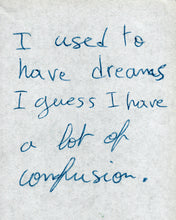 I used to
have dreams
I guess I have
a lot of
confusion.